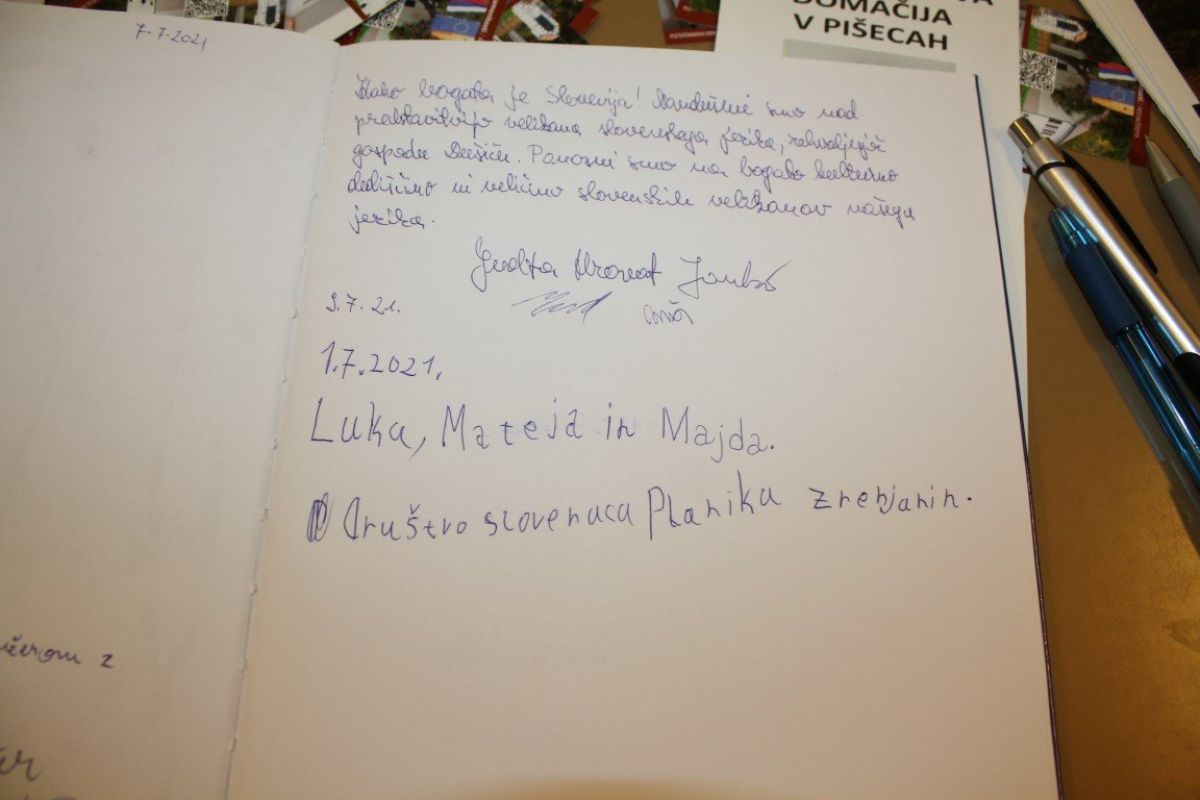 7.7.2021
Kako bogata je Slovenija! Navdušeni smo nad
predstavitvijo velikana slovenskega jezika, zahvaljujoč
gospodu Dušiču. Ponosni smo na bogato kulturno
dediščino in veličino slovenskih velikanov našega
jezika.
Judita
3.7.21.
1.7.2021.
Luka, Mateja in Majda.
Društvo slovenaca Planika zrenjanin.
DOMAČIJA
V PIŠECAH